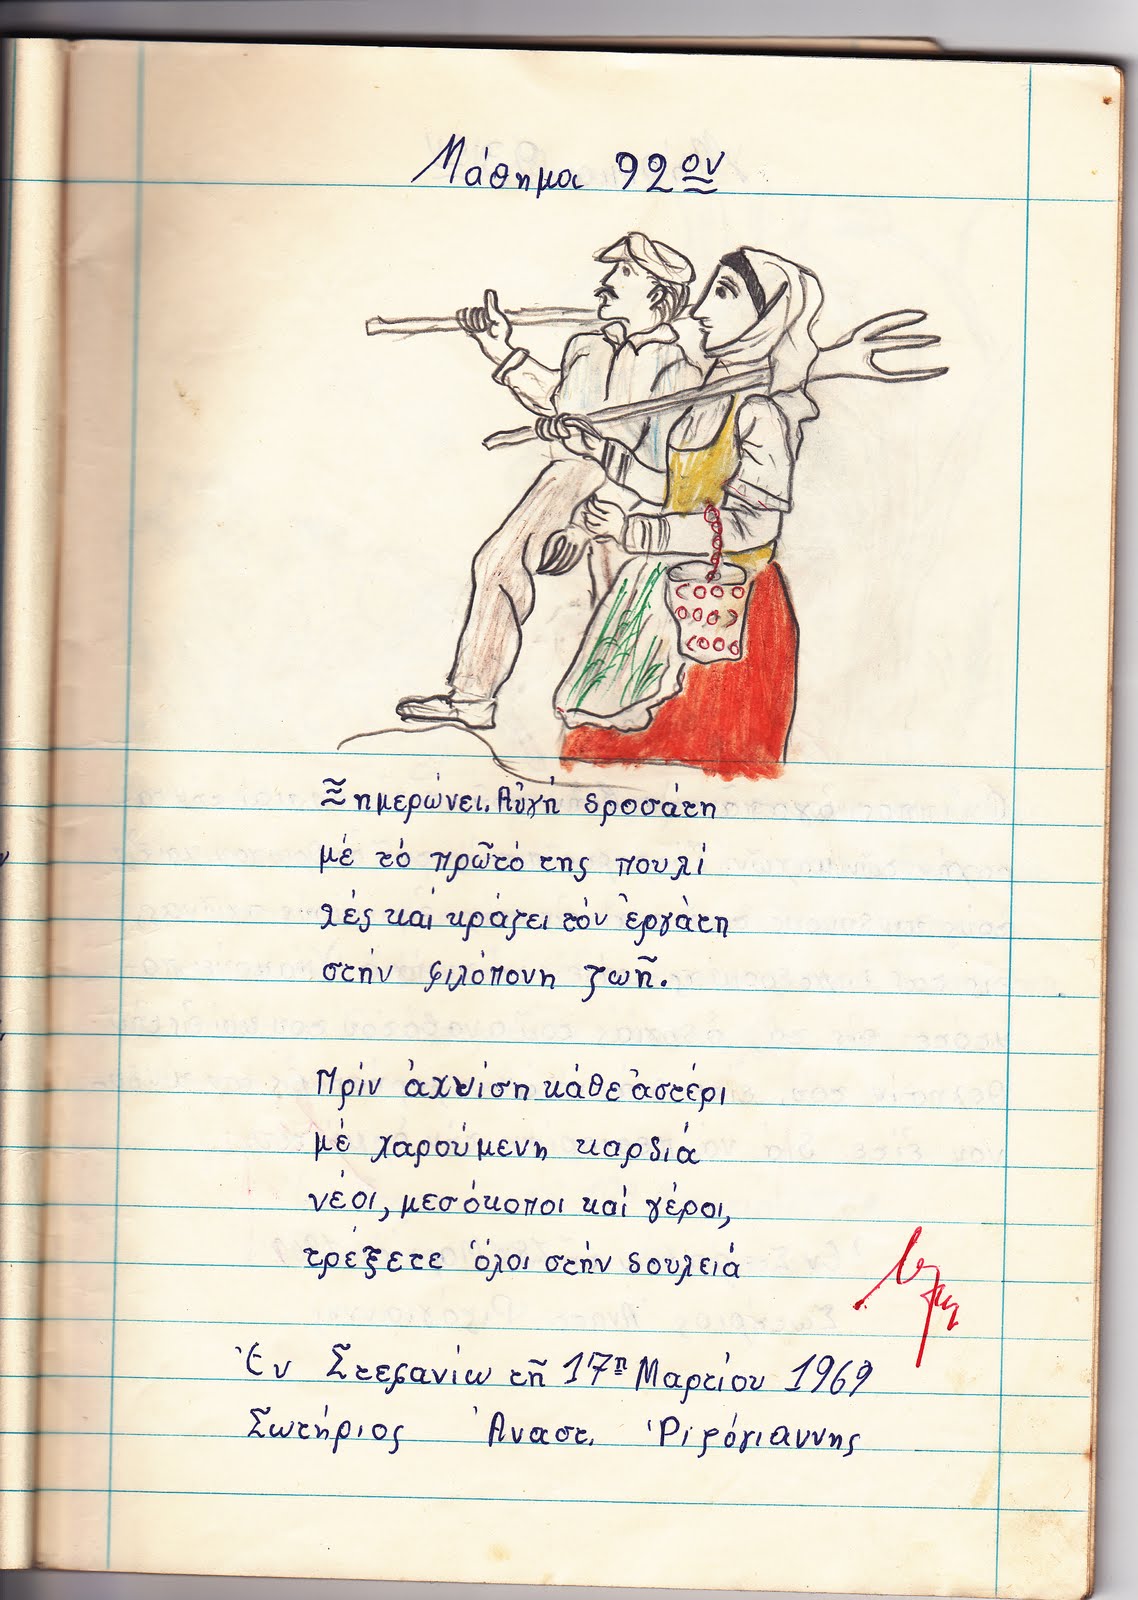 Μάθημα 92ον
Ξημερώνει. Αὐγή δροσάτη
μέ τό πρῶτό της πουλί
λές καί κράζει τόν ἐργάτη
στήν φιλόπονη ζωῆ.
Πρίν ἀχνίση κάθε ἀστέρι
μέ χαρούμενη καρδιά
νέοι, μεσόκοποι καί γέροι,
τρέξετε ὅλοι στήν δουλειά
Ἐν Στεφανίω τῆ 17η Μαρτίου 1969
Σωτήριος Ἀναστ. Ῥιζόγιαννης